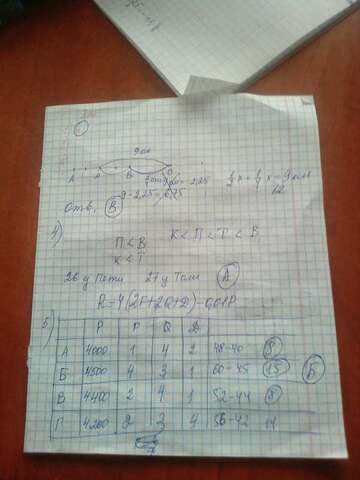 9см
А А В С
1/2x + 1/4x = 9см
9 - 2,25 = 6,75
12
Отв. В
4)
П < В К < П < Т < В
К < Т
26 у Пети 27 у Толи А
R = 4(2F+2Q+D) - 0,01P
5)
P F Q D
А 4000 1 4 2 48-40 8
Б 4500 4 3 1 60-45 15 Б
В 4400 2 4 1 52-44 8
Г 4200 2 3 4 56-42 14